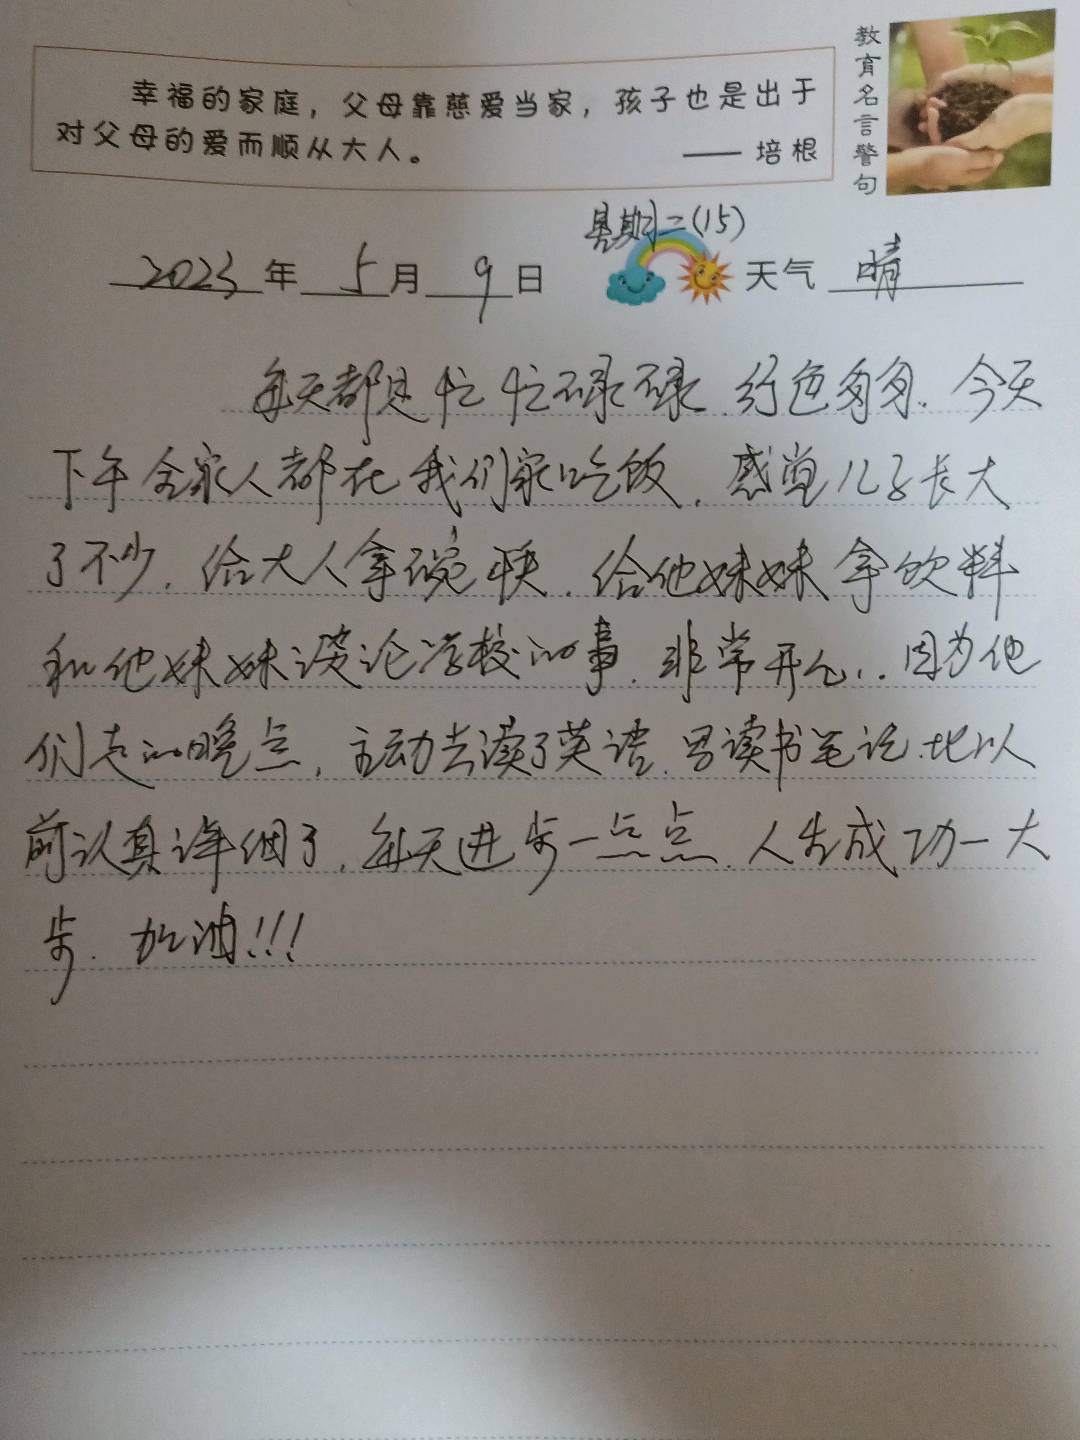 幸福的家庭，父母靠慈爱当家，孩子也是出于
对父母的爱而顺从大人。
—— 培根
教育名言警句
星期二(15)
2023年 5月 9日 天气 晴
每天都是忙忙碌碌.行色匆匆.今天
下午全家人都在我们家吃饭.感觉儿子长大
了不少.给大人拿碗筷.给他妹妹拿饮料
和他妹妹谈论学校的事.非常开心..因为他
们走的晚点,主动去读了英语.写读书笔记.比以
前认真详细了.每天进步一点点.人生成功一大
步.加油!!!